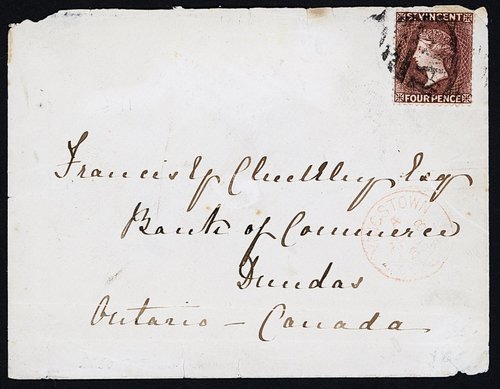 ST VINCENT
FOUR PENCE
Francis Esq
Bank of Commerce
Dundas
Ontario – Canada